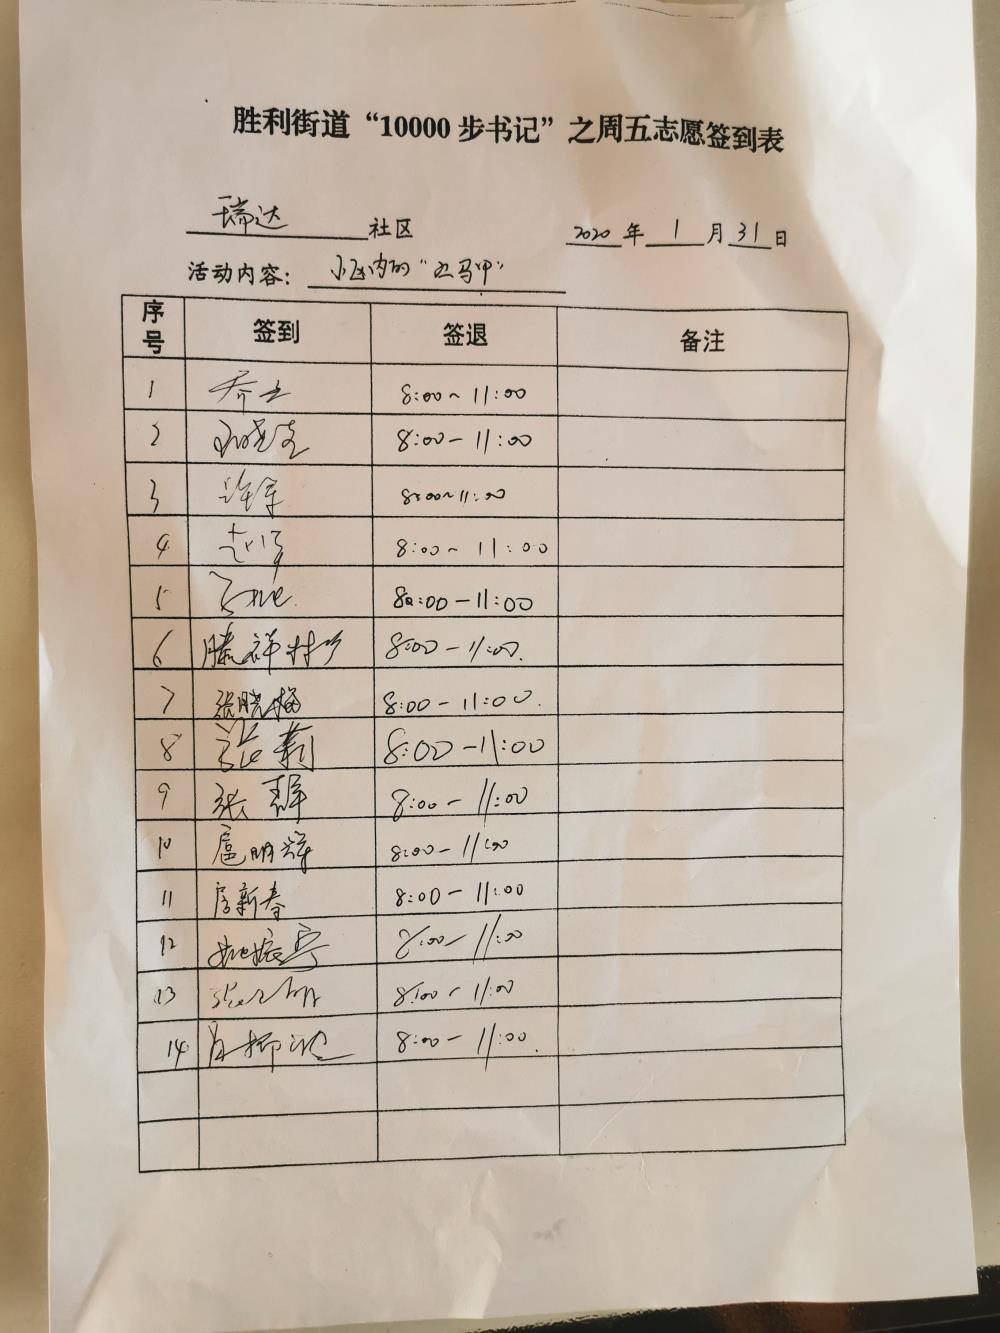 胜利街道“10000步书记”之周五志愿签到表
瑞达 社区 2020 年 1 月 31 日
活动内容: 小区内的“红马甲”
序号 签到 签退 备注
1 乔 8:00~11:00
2 8:00-11:00
3 许军 8:00~11:00
4 8:00~11:00
5 8:00-11:00
6 滕祥村 8:00-11:00.
7 张晓梅 8:00-11:00.
8 莉 8:00-11:00
9 张群 8:00-11:00
10 扈明辉 8:00-11:00
11 房新春 8:00-11:00
12 姚振 8:00-11:00
13 8:00-11:00
14 肖柳 8:00-11:00.